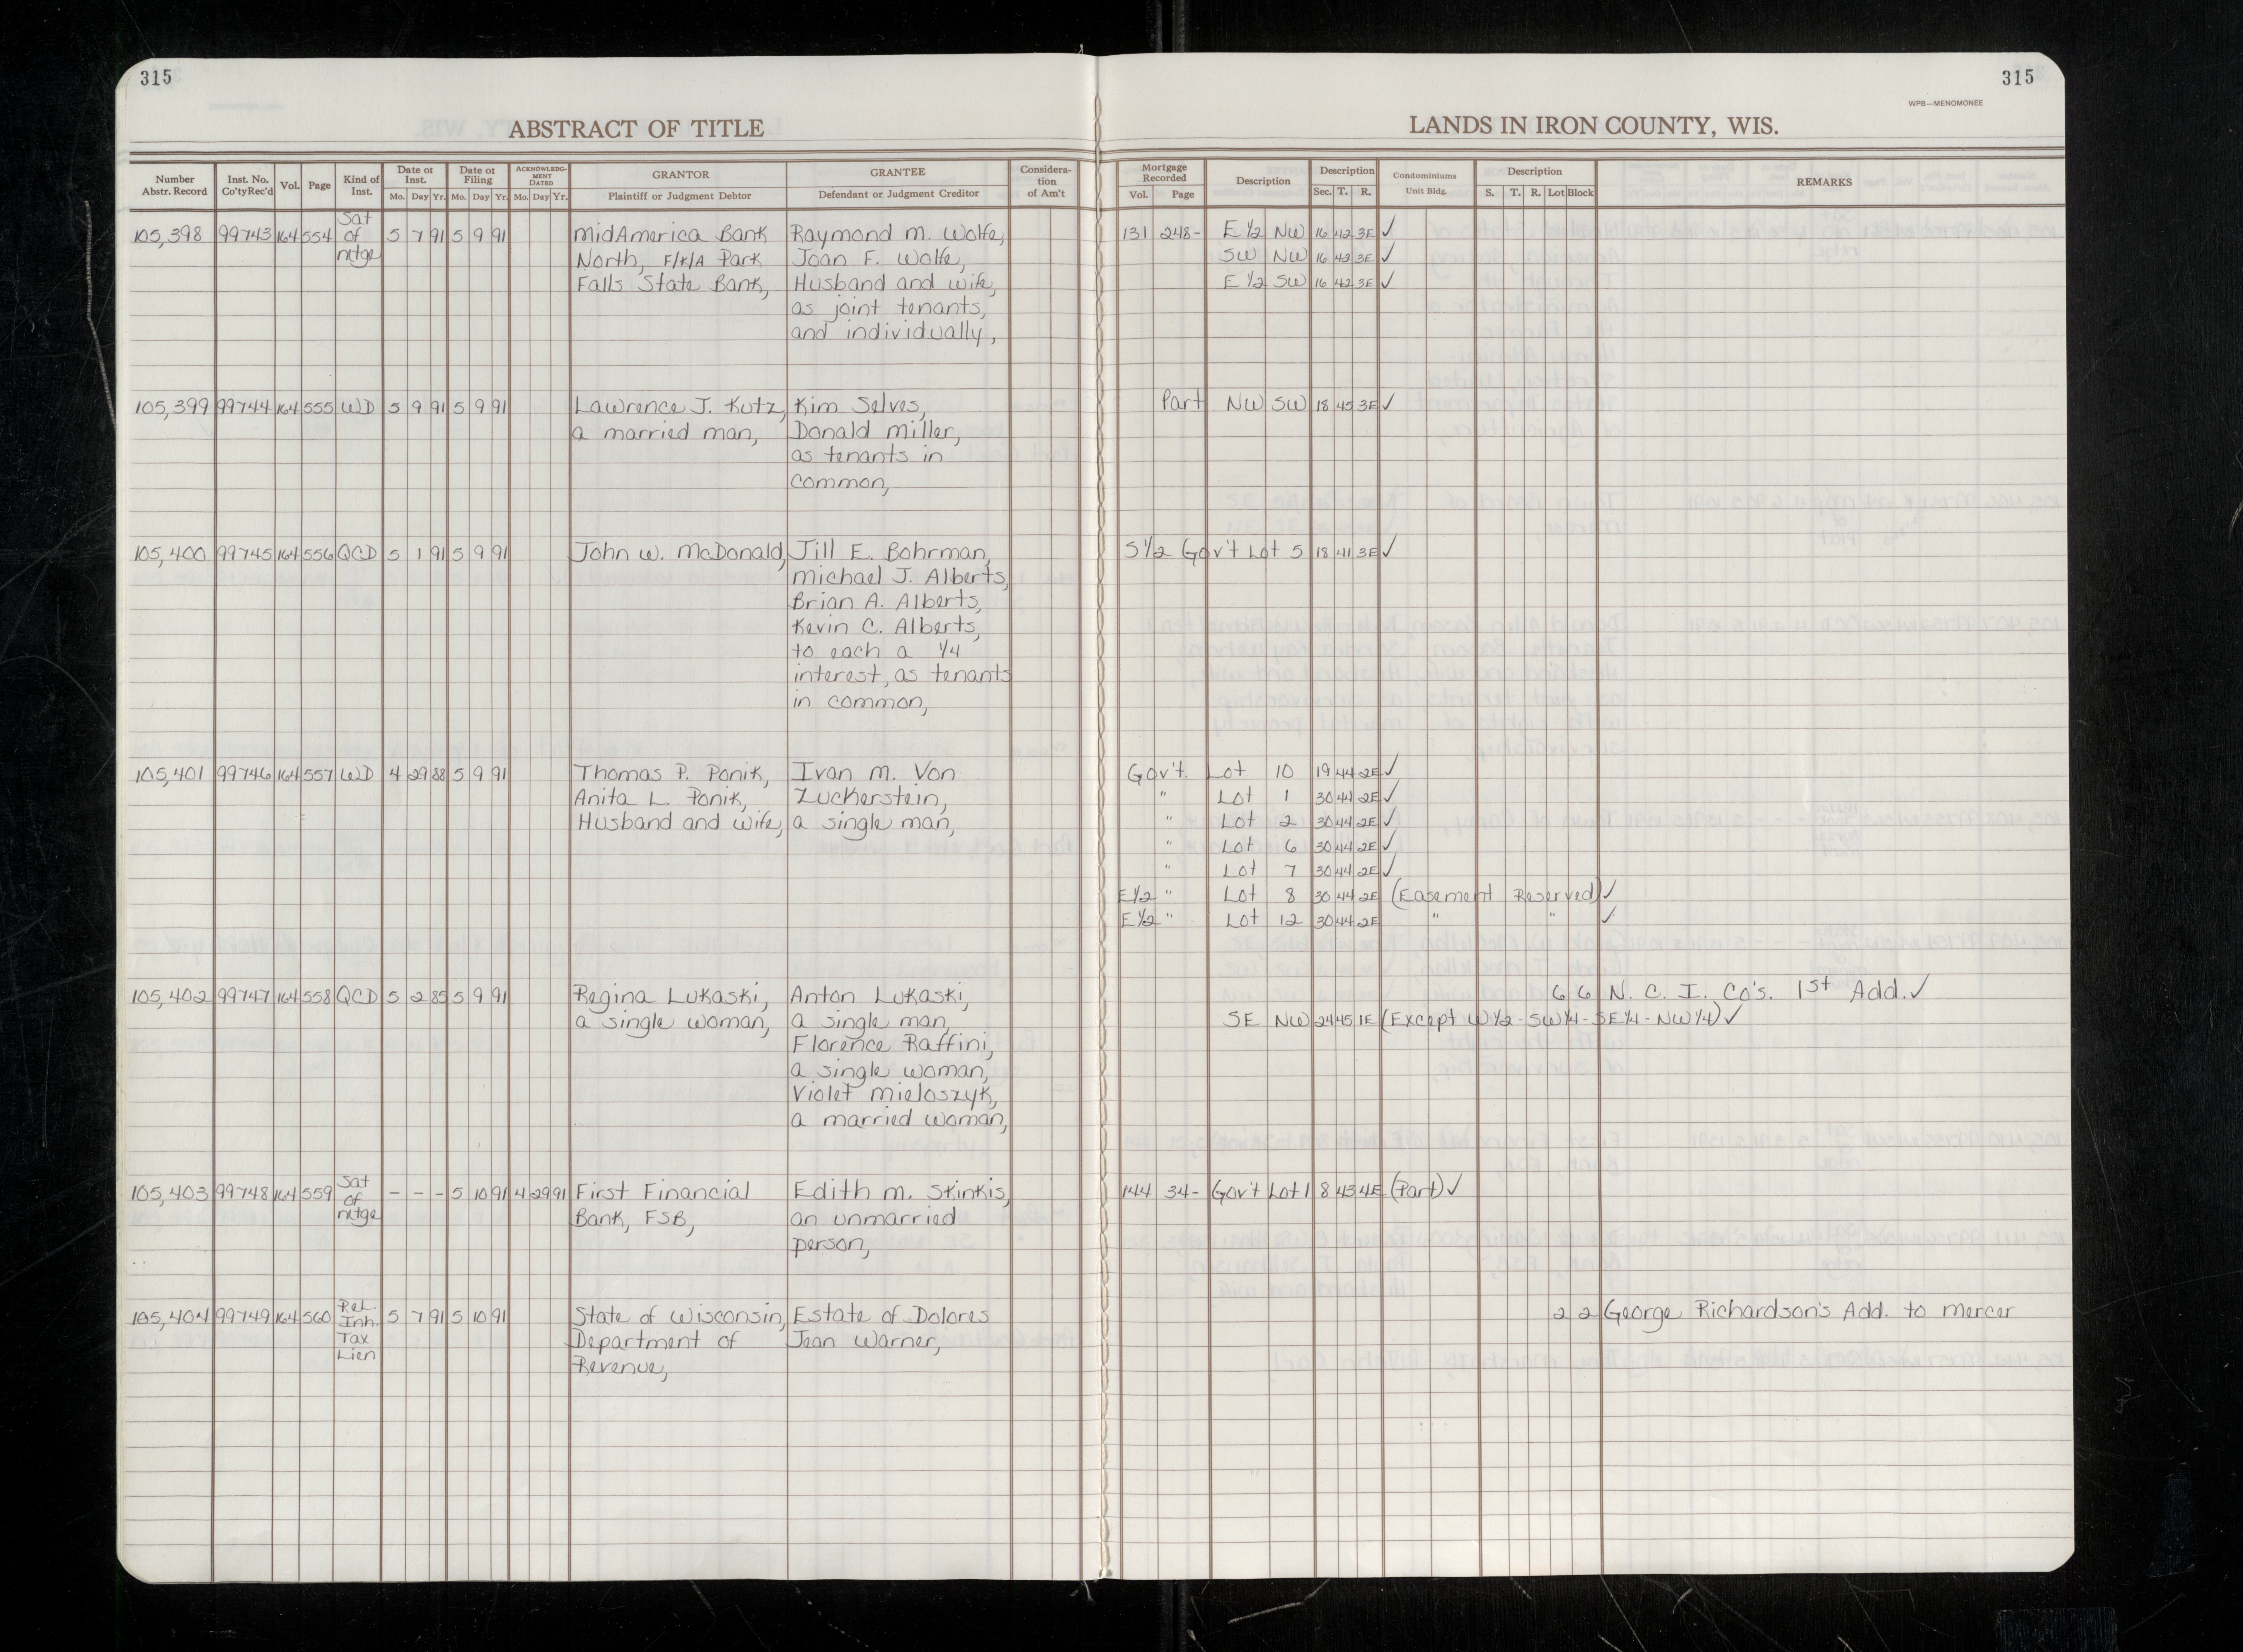 315
315
WPB—MENOMONEE
ABSTRACT OF TITLE
LANDS IN IRON COUNTY, WIS.
Number Abstr. Record Inst. No. Co'tyRec'd Vol. Page Kind of Inst. Date of Inst. Mo. Day Yr. Date of Filing Mo. Day Yr. ACKNOWLEDGMENT DATED Mo. Day Yr. GRANTOR Plaintiff or Judgment Debtor GRANTEE Defendant or Judgment Creditor Consideration of Am't Mortgage Recorded Vol. Page Description Description Sec. T. R. Condominiums Unit Bldg. Description S. T. R. Lot Block REMARKS
105,398 99743 164 554 Sat of mtge 5 7 91 5 9 91 MidAmerica Bank Raymond M. Wolfe, 131 248- E 1/2 NW 16 42 3E ✓
North, F/K/A Park Joan F. Wolfe, SW NW 16 42 3E ✓
Falls State Bank, Husband and wife, E 1/2 SW 16 42 3E ✓
as joint tenants,
and individually,
105,399 99744 164 555 WD 5 9 91 5 9 91 Lawrence J. Kutz, Kim Selves, Part NW SW 18 45 3E ✓
a married man, Donald Miller,
as tenants in
common,
105,400 99745 164 556 QCD 5 1 91 5 9 91 John W. McDonald, Jill E. Bohrman, S 1/2 Gov't Lot 5 18 41 3E ✓
Michael J. Alberts,
Brian A. Alberts,
Kevin C. Alberts,
to each a 1/4
interest, as tenants
in common,
105,401 99746 164 557 WD 4 29 88 5 9 91 Thomas P. Ponik, Ivan M. Von Gov't. Lot 10 19 44 2E ✓
Anita L. Ponik, Zuckerstein, " Lot 1 30 44 2E ✓
Husband and wife, a single man, " Lot 2 30 44 2E ✓
" Lot 6 30 44 2E ✓
" Lot 7 30 44 2E ✓
E 1/2 " Lot 8 30 44 2E (Easement Reserved) ✓
E 1/2 " Lot 12 30 44 2E " " ✓
105,402 99747 164 558 QCD 5 2 85 5 9 91 Regina Lukaski, Anton Lukaski, 6 6 N. C. I. Co's. 1st Add. ✓
a single woman, a single man, SE NW 24 45 1E (Except W 1/2 - SW 1/4 - SE 1/4 - NW 1/4) ✓
Florence Raffini,
a single woman,
Violet Mieloszyk,
a married woman,
105,403 99748 164 559 Sat of mtge - - - 5 10 91 4 29 91 First Financial Edith M. Skinkis, 144 34- Gov't Lot 1 8 43 4E (Part) ✓
Bank, FSB, an unmarried
person,
105,404 99749 164 560 Rel. Inh. Tax Lien 5 7 91 5 10 91 State of Wisconsin, Estate of Dolores 2 2 George Richardson's Add. to Mercer
Department of Jean Warner,
Revenue,